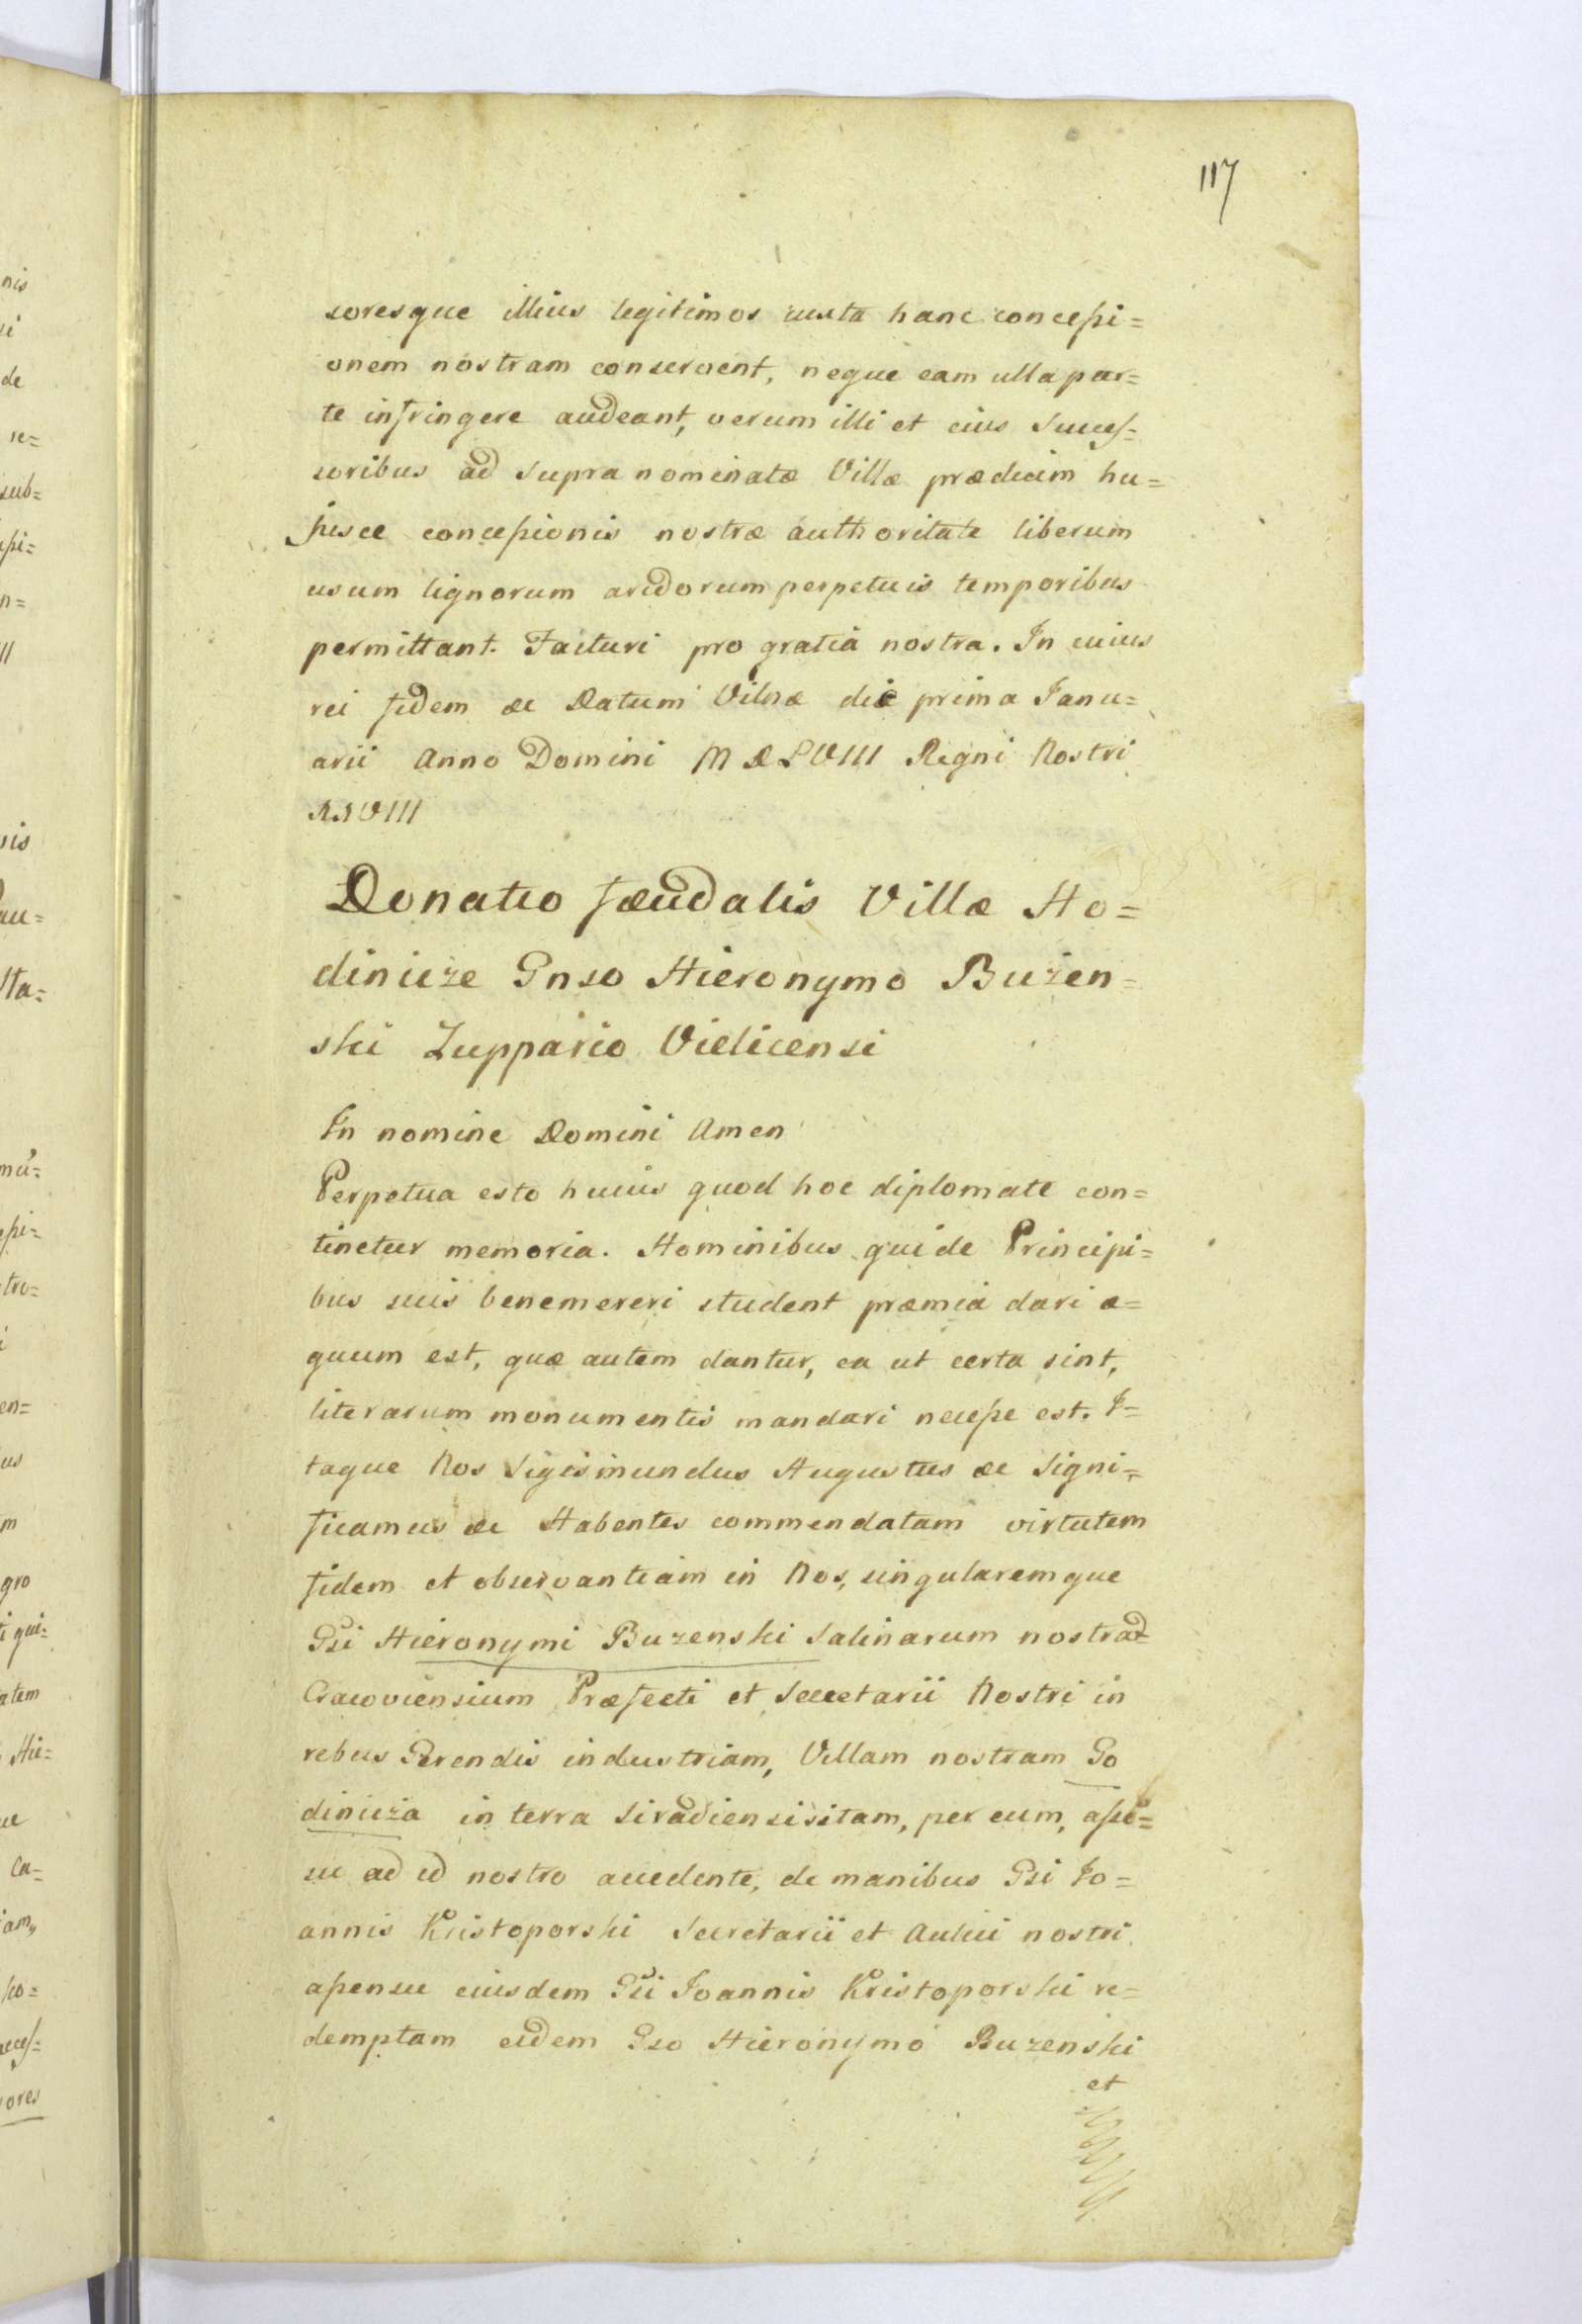 117
soresque illius legitimos iuxta hanc conceßi=
onem nostram conservent, neque eam ulla par=
te infringere audeant, verum illi et eius Succeß=
soribus ad supra nominatæ Villæ prædium hu=
jusce conceßionis nostræ authoritate liberum
usum lignorum aridorum perpetuis temporibus
permittant. Facturi pro gratia nostra. In cuius
rei fidem &c Datum Vilnæ die prima Janu=
arii Anno Domini MDLVIII Regni Nostri
XXVIII
Donatio fæudalis Villæ Ho=
dinicze Gnso Hieronymo Bużen=
ski Zuppario Vielicensi
In nomine Domini Amen
Perpetua esto huius quod hoc diplomate con=
tinetur memoria. Hominibus qui de Principi=
bus suis benemereri student præmia dari æ=
quum est, quæ autem dantur, ea ut certa sint,
literarum monumentis mandari neceße est. I=
taque Nos Sigismundus Augustus &c Signi=
ficamus &c Habentes commendatam virtutem
fidem et observantiam in Nos, singularemque
Gsi Hieronymi Buzenski Salinarum nostrar
Cracoviensium Præfecti et Secretarii Nostri in
rebus Gerendis industriam, Villam nostram Go
dinicza in terra Siradiensi sitam, per eum, aßen=
su ad id nostro accedente, de manibus Gsi Jo=
annis Kristoporski Secretarii et Aulici nostri
aßensu eiusdem Gsi Joannis Kristoporski re=
demptam eidem Gso Hieronymo Buzenski
et
nis
si
de
re=
sub=
ßi=
n=
vis
sta=
mu=
tro=
en=
us
m
gro
i qui=
Hie=
ca=
iam,
ko=
ores